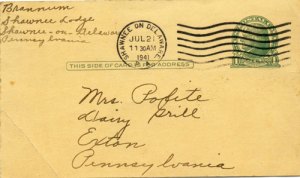 Brannum
Shawnee Lodge
Shawnee-on-Delaware
Pennsylvania
SHAWNEE ON DELAWARE
JUL 2
11 30 AM
1941
PA.
THIS SIDE OF CARD IS FOR ADDRESS
Mrs. Pofite
Dairy Grill
Exton
Pennsylvania